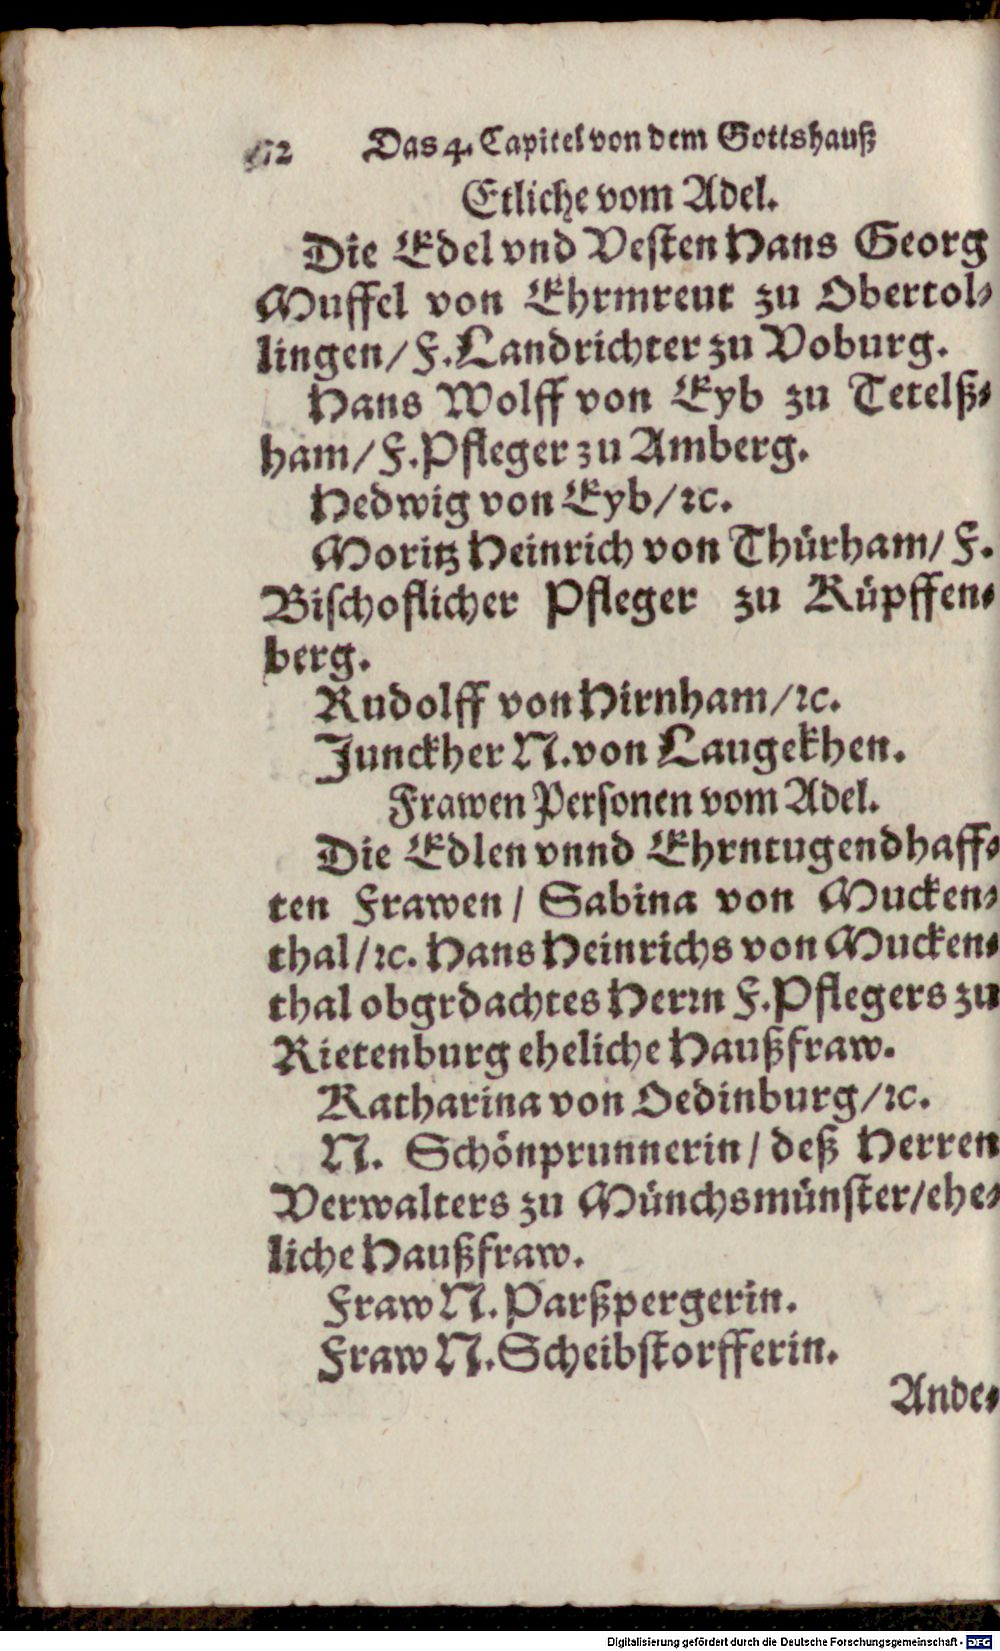 172 Das 4. Capitel von dem Gottshauß
Etliche vom Adel.
Die Edel vnd Vesten Hans Georg
Muffel von Ehrmreut zu Obertol-
lingen/ F. Landrichter zu Voburg.
Hans Wolff von Eyb zu Tetelß-
ham/ F. Pfleger zu Amberg.
Hedwig von Eyb/ ꝛc.
Moritz Heinrich von Thürham/ F.
Bischoflicher Pfleger zu Rüpffen-
berg.
Rudolff von Hirnham/ ꝛc.
Junckher N. von Laugekhen.
Frawen Personen vom Adel.
Die Edlen vnnd Ehrntugendhaff-
ten Frawen/ Sabina von Mucken-
thal/ ꝛc. Hans Heinrichs von Mucken-
thal obgrdachtes Herꝛn F. Pflegers zu
Rietenburg eheliche Haußfraw.
Katharina von Oedinburg/ ꝛc.
N. Schönprunnerin/ deß Herren
Verwalters zu Münchsmünster/ ehe-
liche Haußfraw.
Fraw N. Parßpergerin.
Fraw N. Scheibstorfferin.
Ande-
Digitalisierung gefördert durch die Deutsche Forschungsgemeinschaft - DFG